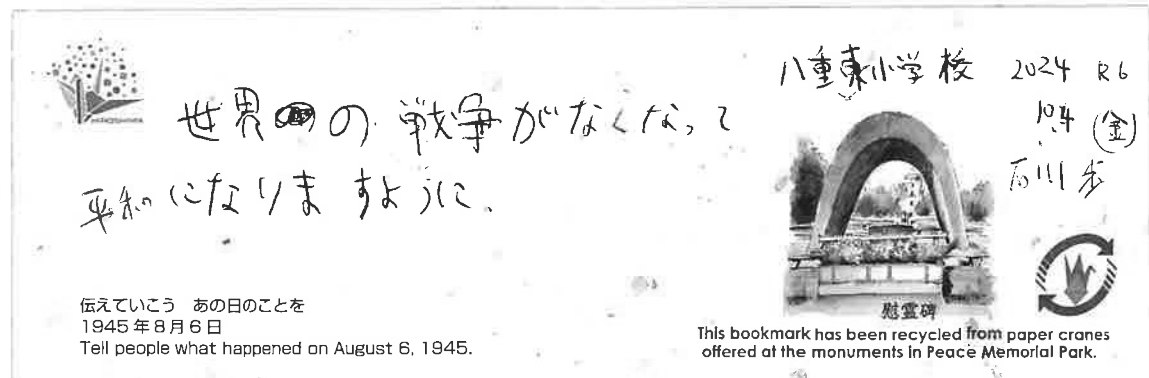 HIROSHIMA
世界の戦争がなくなって
平和になりますように.
八重東小学校 2024 R6
10.4 (金)
石川 歩
伝えていこう あの日のことを
1945年8月6日
Tell people what happened on August 6, 1945.
慰霊碑
This bookmark has been recycled from paper cranes
offered at the monuments in Peace Memorial Park.